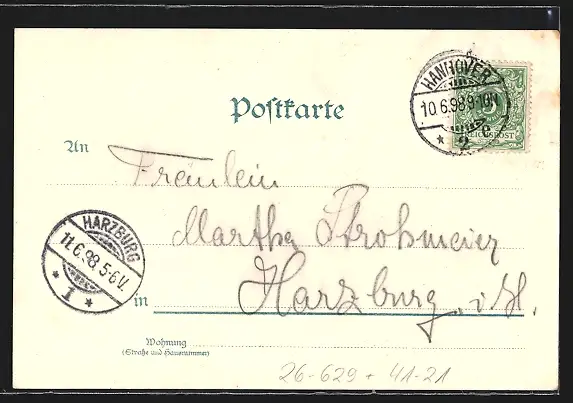 Postkarte
HANNOVER
10.6.98.9-10N
* 2 c
REICHSPOST
An Fräulein
Martha Strohmeier
HARZBURG
11.6.98.5-6V.
* 1 *
in Harzburg. i/H.
Wohnung
(Straße und Hausnummer)
26-629 + 41-21